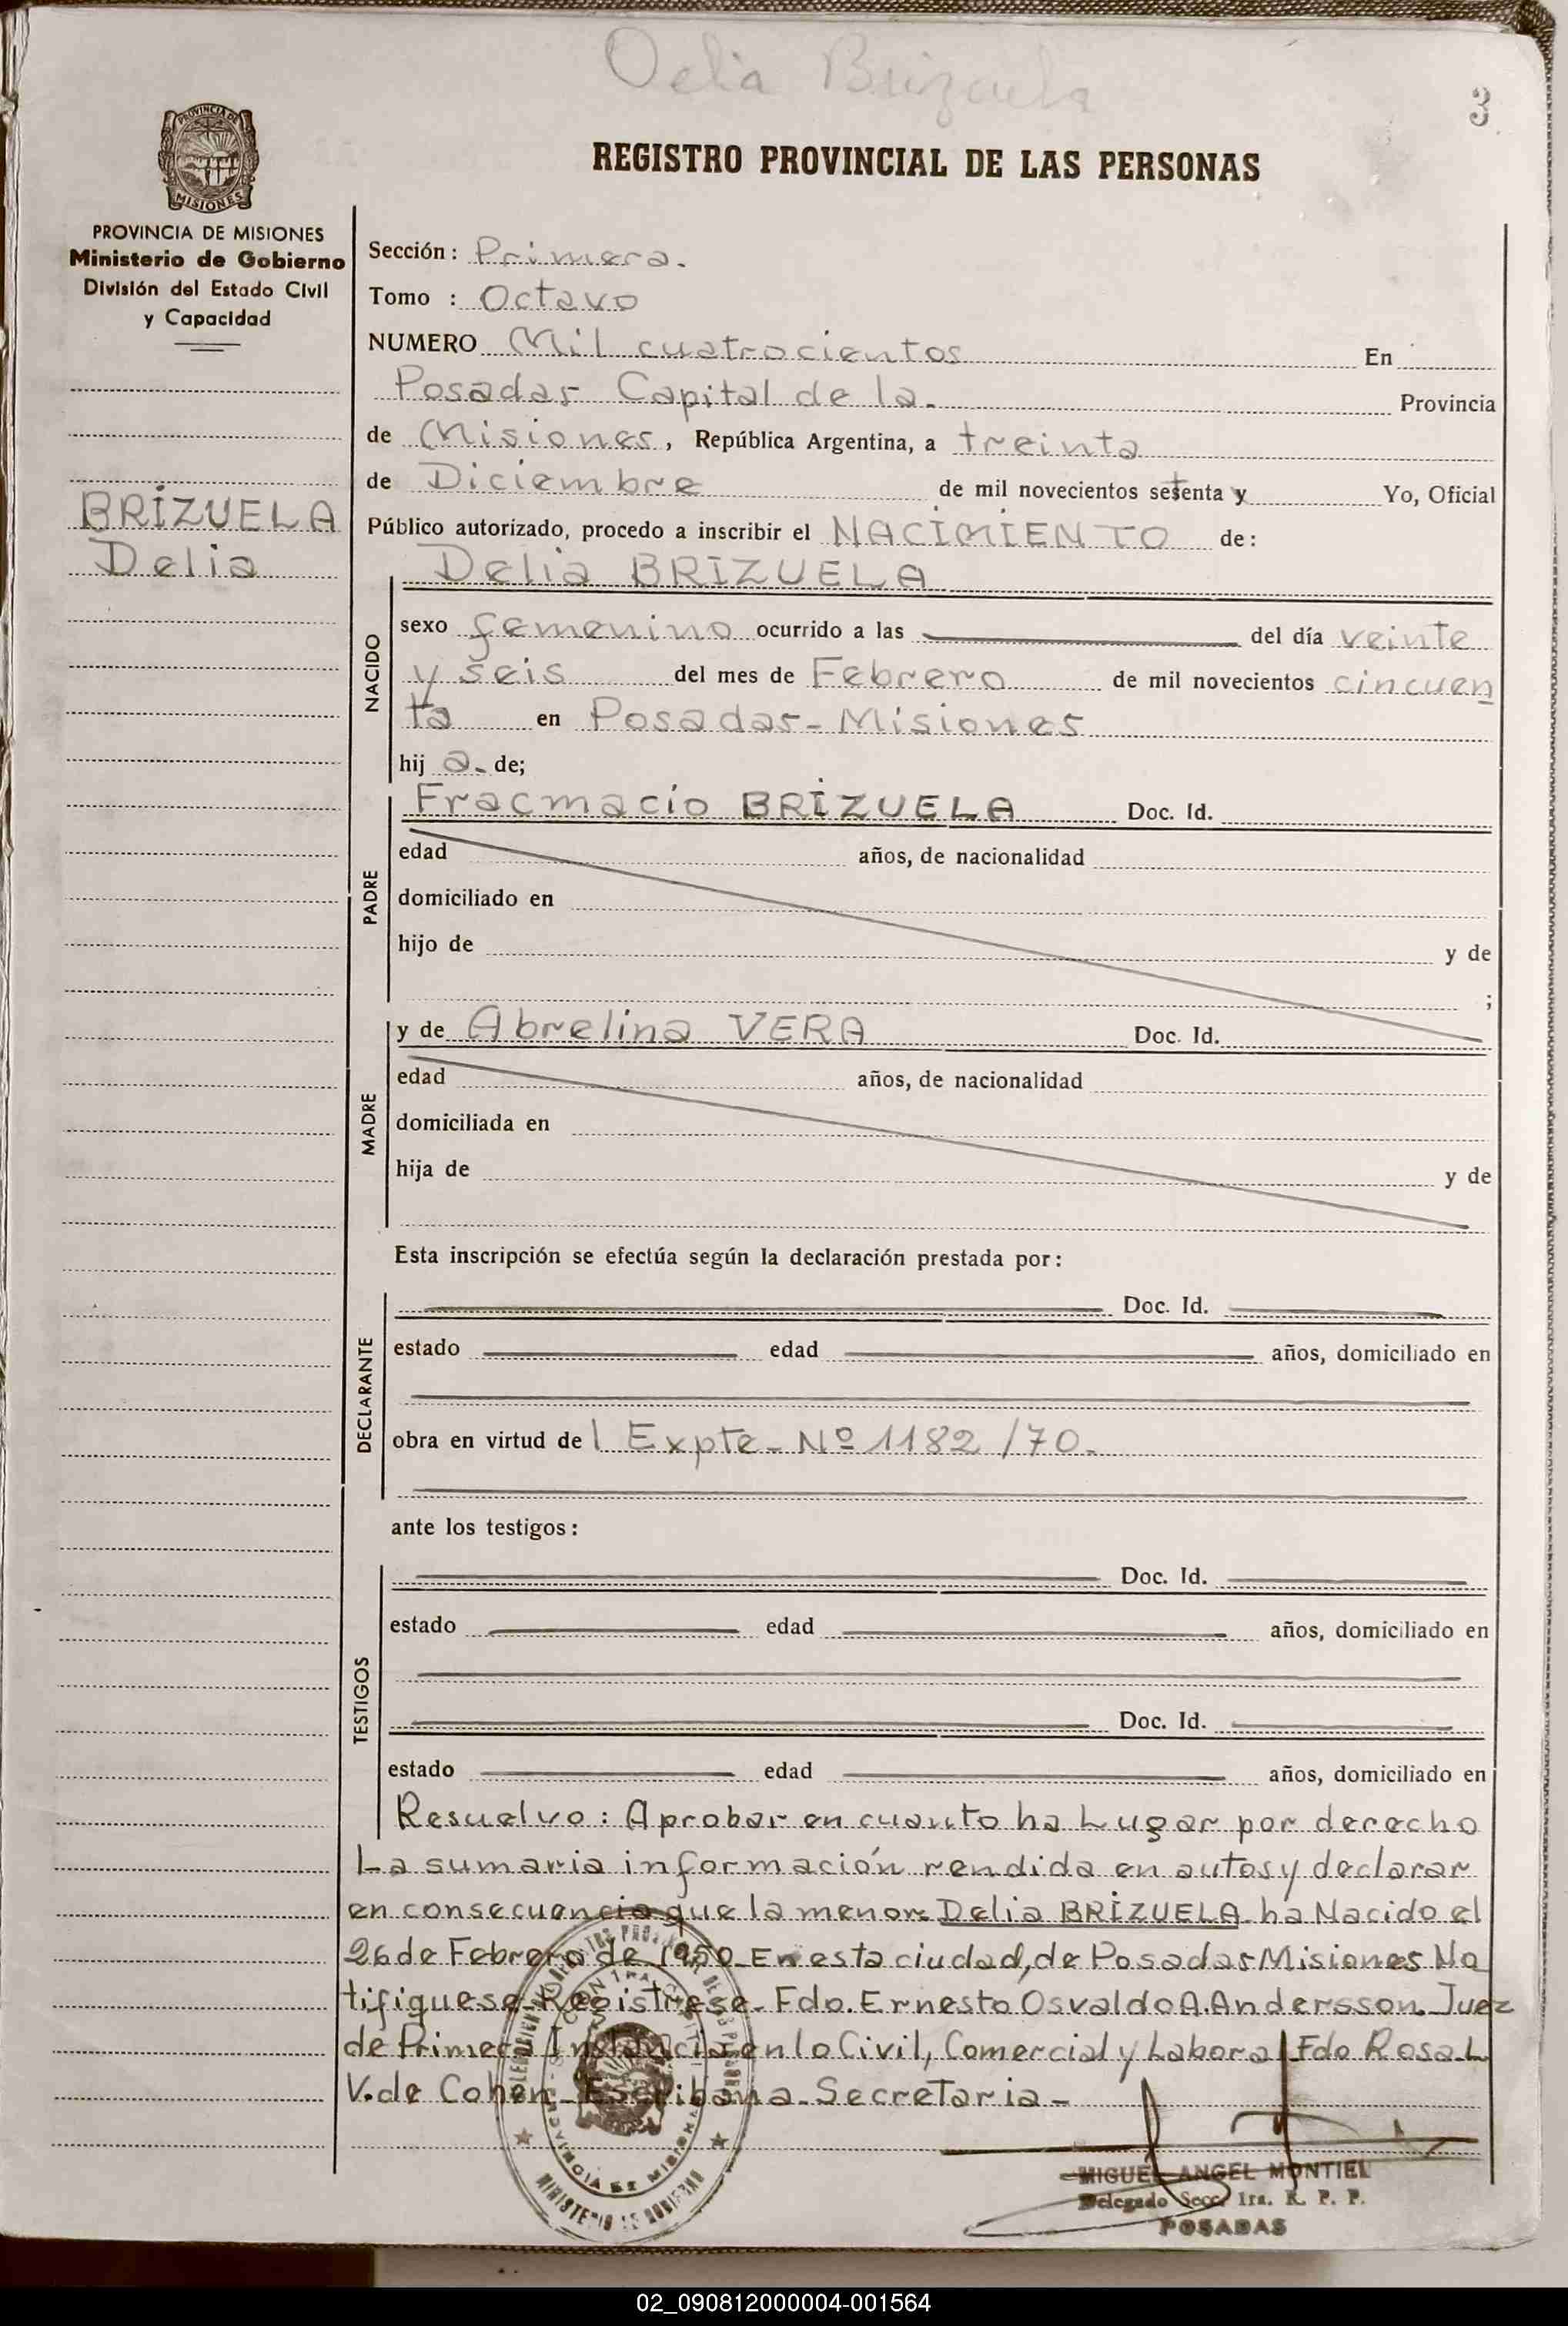 Delia Brizuela
3
PROVINCIA DE
MISIONES
REGISTRO PROVINCIAL DE LAS PERSONAS
PROVINCIA DE MISIONES
Ministerio de Gobierno
División del Estado Civil
y Capacidad
BRIZUELA
Delia
Sección: Primera.
Tomo : Octavo
NUMERO Mil cuatrocientos En
Posadas Capital de la. Provincia
de Misiones, República Argentina, a treinta
de Diciembre de mil novecientos setenta y Yo, Oficial
Público autorizado, procedo a inscribir el NACIMIENTO de:
Delia BRIZUELA
NACIDO
sexo femenino ocurrido a las del día veinte
y seis del mes de Febrero de mil novecientos cincuen
ta en Posadas-Misiones
hij a. de;
PADRE
Fracmacio BRIZUELA Doc. Id.
edad años, de nacionalidad
domiciliado en
hijo de y de
;
MADRE
y de Abrelina VERA Doc. Id.
edad años, de nacionalidad
domiciliada en
hija de y de
Esta inscripción se efectúa según la declaración prestada por:
DECLARANTE
Doc. Id.
estado edad años, domiciliado en
obra en virtud de l Expte-Nº 1182/70-
ante los testigos:
TESTIGOS
Doc. Id.
estado edad años, domiciliado en
Doc. Id.
estado edad años, domiciliado en
Resuelvo: Aprobar en cuanto ha Lugar por derecho
La sumaria información rendida en autos y declarar
en consecuencia que la menor Delia BRIZUELA ha Nacido el
26 de Febrero de 1950 En esta ciudad, de Posadas Misiones No
tifiquese-Registrese-Fdo. Ernesto Osvaldo A. Andersson. Juez
de Primera Instancia en lo Civil, Comercial y Laboral Fdo Rosa L
V. de Cohen-Escribana-Secretaria-
PROVINCIA DE MISIONES
MINISTERIO DE GOBIERNO
MIGUEL ANGEL MONTIEL
Delegado Secc. 1ra. R. P. P.
POSADAS
02_090812000004-001564